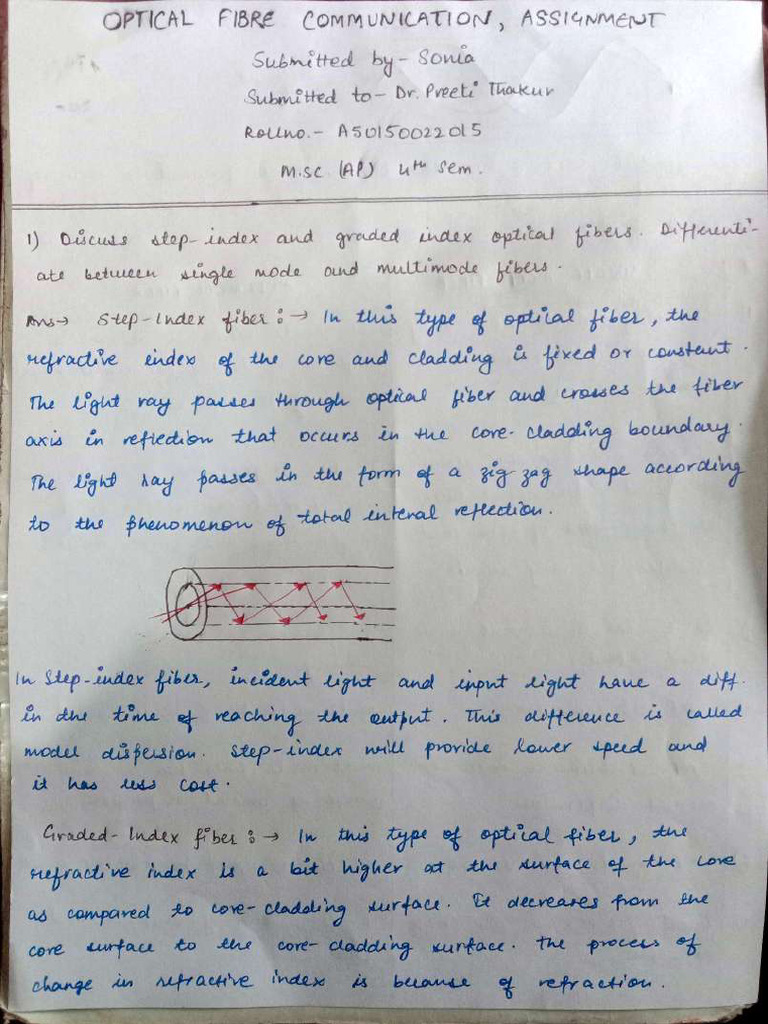 OPTICAL FIBRE COMMUNICATION, ASSIGNMENT
Submitted by - Sonia
Submitted to - Dr. Preeti Thakur
Rollno. - A50150022015
M.SC (AP) 4th sem.
1) Discuss step-index and graded index optical fibers. Differenti-
ate between single mode and multimode fibers.
Ans→ Step-Index fiber:→ In this type of optical fiber, the
refractive index of the core and cladding is fixed or constant.
The light ray passes through optical fiber and crosses the fiber
axis in reflection that occurs in the core-cladding boundary.
The light ray passes in the form of a zig-zag shape according
to the phenomenon of total interal reflection.
In Step-index fiber, incident light and input light have a diff.
in the time of reaching the output. This difference is called
model dispersion. Step-index will provide lower speed and
it has less cost.
Graded-Index fiber:→ In this type of optical fiber, the
refractive index is a bit higher at the surface of the core
as compared to core-cladding surface. It decreases from the
core surface to the core-cladding surface. The process of
change in refractive index is because of refraction.